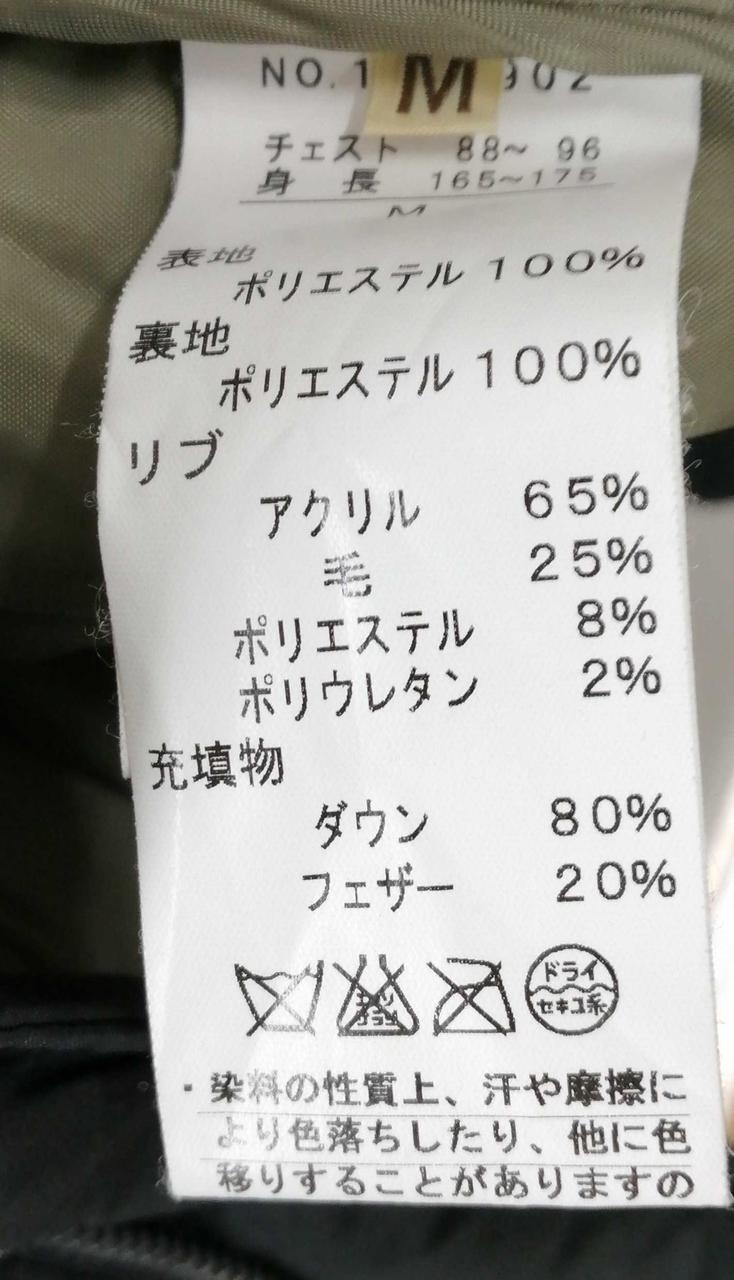 NO.1 902
M
チェスト 88~ 96
身 長 165~175
M
表地
ポリエステル 100%
裏地
ポリエステル 100%
リブ
アクリル 65%
毛 25%
ポリエステル 8%
ポリウレタン 2%
充填物
ダウン 80%
フェザー 20%
エンソ
サラシ
ドライ
セキユ系
・染料の性質上、汗や摩擦に
より色落ちしたり、他に色
移りすることがありますの